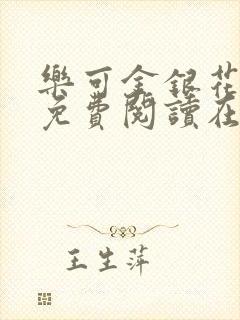 樂可金銀花
免費閱讀在
王生萍